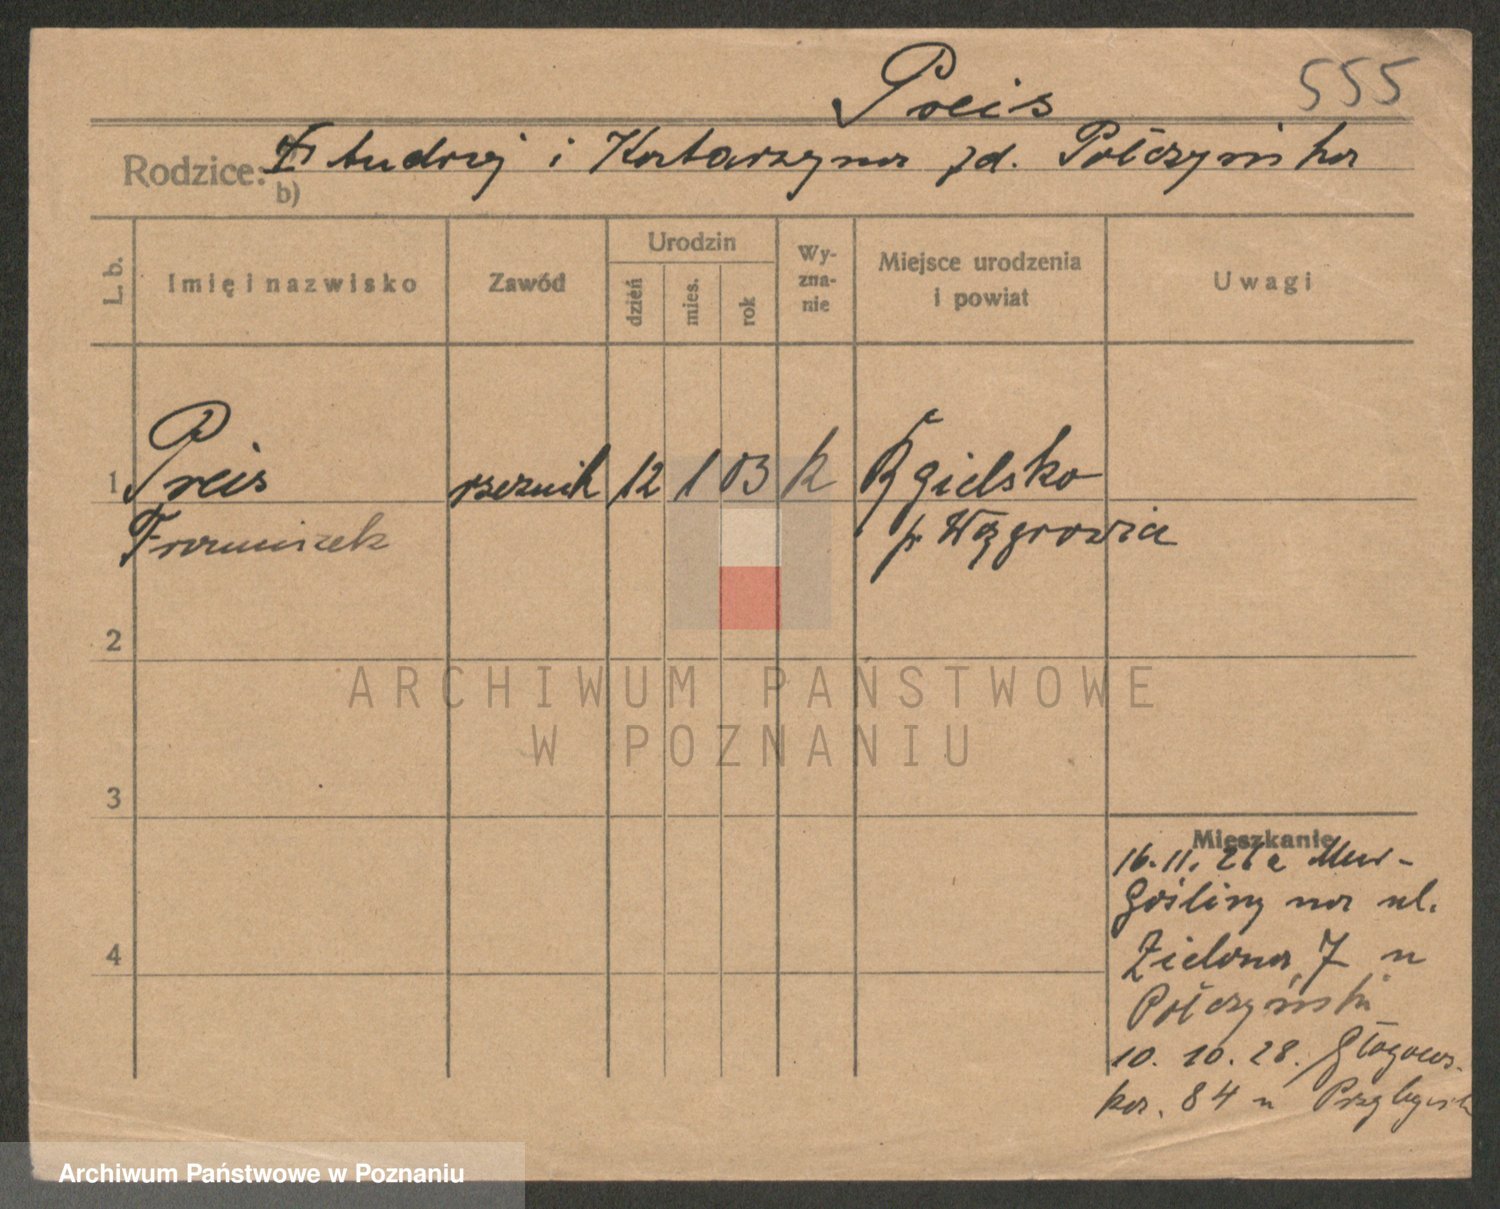 Preis
555
Rodzice: Andrzej i Katarzyna zd. Połczyńska
b)
L. b.
Imię i nazwisko
Zawód
Urodzin
dzień
mies.
rok
Wy-
zna-
nie
Miejsce urodzenia
i powiat
Uwagi
1 Preis rzeźnik 12 1 03 k Rgielsko
Franciszek p. Wągrowiec
2
3
4
Mieszkanie
16. 11. 26 z Mur-
Gośliny na ul.
Zielona 7 u
Połczyński
10. 10. 28. Głogows-
ka. 84 u
ARCHIWUM PAŃSTWOWE
W POZNANIU
Archiwum Państwowe w Poznaniu